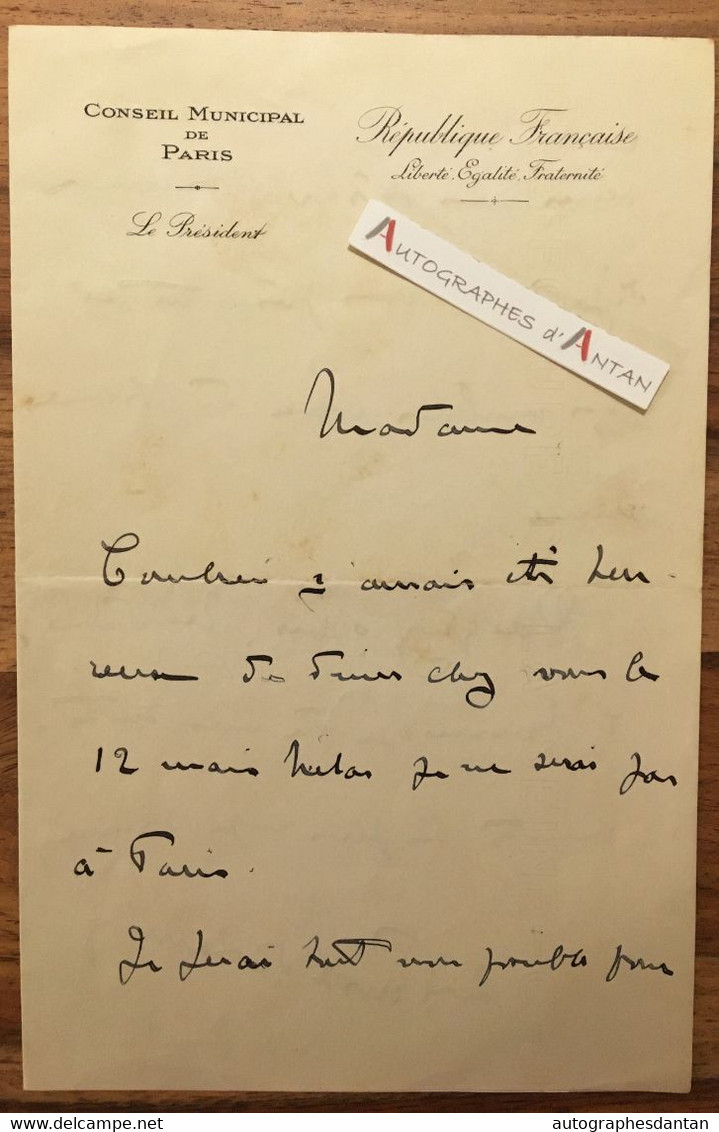 CONSEIL MUNICIPAL
DE
PARIS
Le Président
République Française
Liberté, Egalité, Fraternité
AUTOGRAPHES d'ANTAN
Madame
Combien j'aurais été heu-
reux de diner chez vous le
12 mais hélas je ne serai pas
à Paris.
Je ferai tout mon possible pour
delcampe.net
autographesdantan